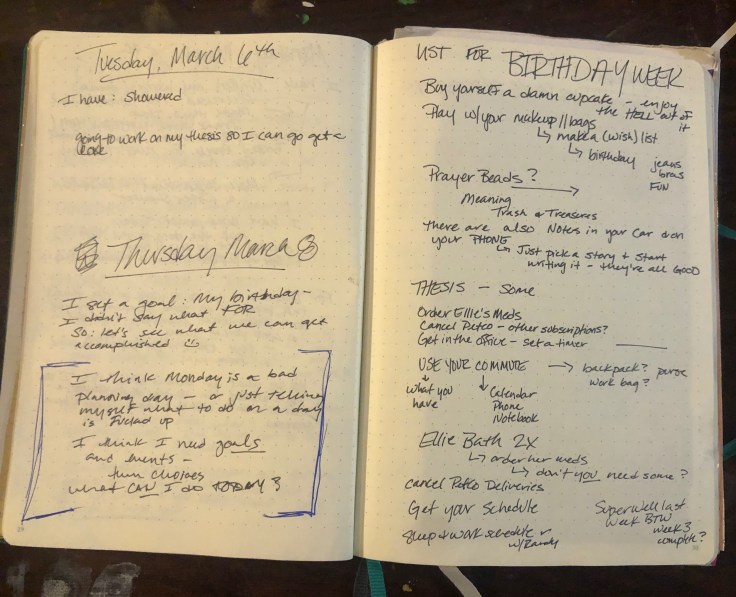 Tuesday, March 6th
I have: showered
going to work on my thesis so I can go get a
Thursday March 8
I set a goal: My birthday -
I didn't say what FOR
So: Let's see what we can get
accomplished
I think Monday is a bad
planning day - or just telling
myself what to do on a day
is fucked up
I think I need goals
and events -
then choices
What CAN I do TODAY?
LIST FOR BIRTHDAY WEEK
Buy yourself a damn cupcake - enjoy
the HELL out of
it
Play w/your makeup // bags
↳ make a (wish) list
↳ birthday
jeans
bras
FUN
Prayer Beads?
Meaning
Trash & Treasures
there are also Notes in your car & on
your PHONE
↳ Just pick a story & start
writing it - they're all GOOD
THESIS - Some
Order Ellie's Meds
Cancel Petco - other subscriptions?
Get in the office - set a timer
USE YOUR COMMUTE → backpack? purse
work bag?
↓ what you
have
↓ Calendar
Phone
Notebook
Ellie Bath 2x
↳ order her meds
↳ don't you need some?
cancel Petco Deliveries
Get your schedule
Sleep & work schedule
w/Randy
SuperWell last
week BTW
week 3
complete?